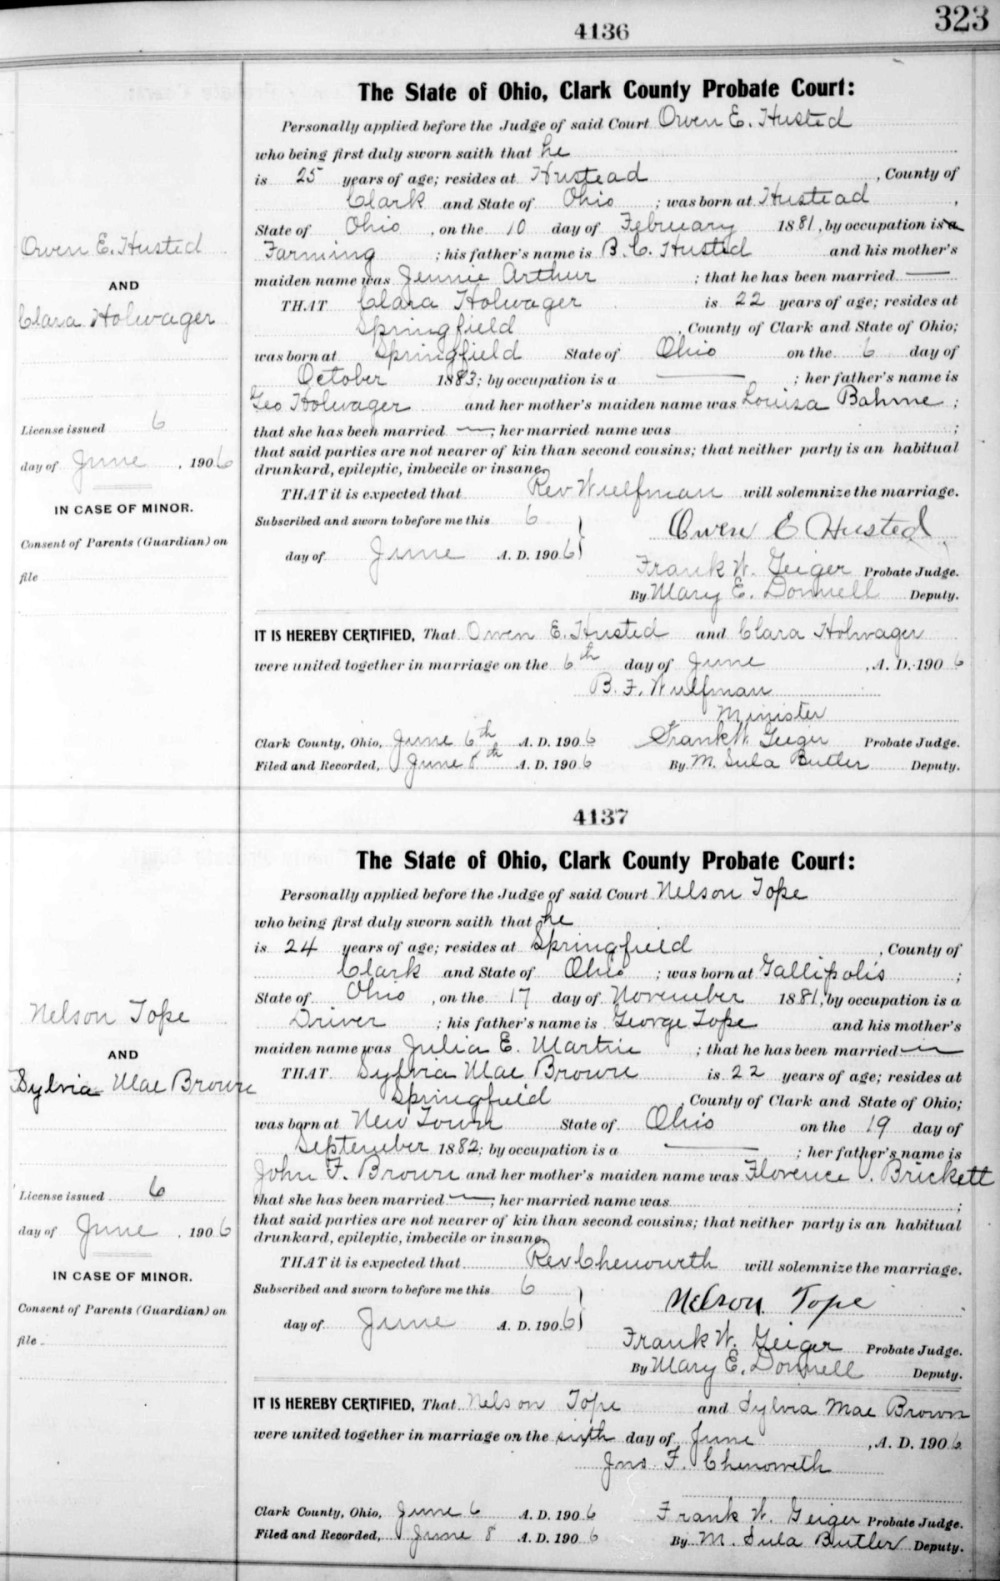 323
4136
The State of Ohio, Clark County Probate Court:
Personally applied before the Judge of said Court Owen E. Husted
who being first duly sworn saith that he
is 25 years of age; resides at Hustead , County of
Clark and State of Ohio ; was born at Hustead ,
State of Ohio , on the 10 day of February 1881, by occupation is a
Farming ; his father's name is B. C. Husted and his mother's
maiden name was Jennie Arthur ; that he has been married —
THAT Clara Holwager is 22 years of age; resides at
Springfield , County of Clark and State of Ohio;
was born at Springfield State of Ohio on the 6 day of
October 1883; by occupation is a — ; her father's name is
Geo Holwager and her mother's maiden name was Louisa Bahme ;
that she has been married — ; her married name was ;
that said parties are not nearer of kin than second cousins; that neither party is an habitual
drunkard, epileptic, imbecile or insane,
THAT it is expected that Rev Wulfman will solemnize the marriage.
Subscribed and sworn to before me this 6
day of June A. D. 1906
Owen E Husted
Frank W. Geiger Probate Judge.
By Mary E. Donnell Deputy.
Owen E. Husted
AND
Clara Holwager
License issued 6
day of June , 1906
IN CASE OF MINOR.
Consent of Parents (Guardian) on
file
IT IS HEREBY CERTIFIED, That Owen E. Husted and Clara Holwager
were united together in marriage on the 6th day of June , A. D. 1906
B. F. Wulfman
Minister
Clark County, Ohio, June 6th A. D. 1906 Frank W. Geiger Probate Judge.
Filed and Recorded, June 8th A. D. 1906 By M. Sula Butler Deputy.
4137
The State of Ohio, Clark County Probate Court:
Personally applied before the Judge of said Court Nelson Tope
who being first duly sworn saith that he
is 24 years of age; resides at Springfield , County of
Clark and State of Ohio ; was born at Gallipolis ;
State of Ohio , on the 17 day of November 1881, by occupation is a
Driver ; his father's name is George Tope and his mother's
maiden name was Julia E. Martin ; that he has been married —
THAT Sylvia Mae Brown is 22 years of age; resides at
Springfield , County of Clark and State of Ohio;
was born at New Town State of Ohio on the 19 day of
September 1882; by occupation is a — ; her father's name is
John F. Brown and her mother's maiden name was Florence V. Brickett
that she has been married — ; her married name was ;
that said parties are not nearer of kin than second cousins; that neither party is an habitual
drunkard, epileptic, imbecile or insane,
THAT it is expected that Rev Chenowith will solemnize the marriage.
Subscribed and sworn to before me this 6
day of June A. D. 1906
Nelson Tope
Frank W. Geiger Probate Judge.
By Mary E. Donnell Deputy.
Nelson Tope
AND
Sylvia Mae Brown
License issued 6
day of June , 1906
IN CASE OF MINOR.
Consent of Parents (Guardian) on
file
IT IS HEREBY CERTIFIED, That Nelson Tope and Sylvia Mae Brown
were united together in marriage on the sixth day of June , A. D. 1906
Jno F. Chenoweth
Clark County, Ohio, June 6 A. D. 1906 Frank W. Geiger Probate Judge.
Filed and Recorded, June 8 A. D. 1906 By M. Sula Butler Deputy.